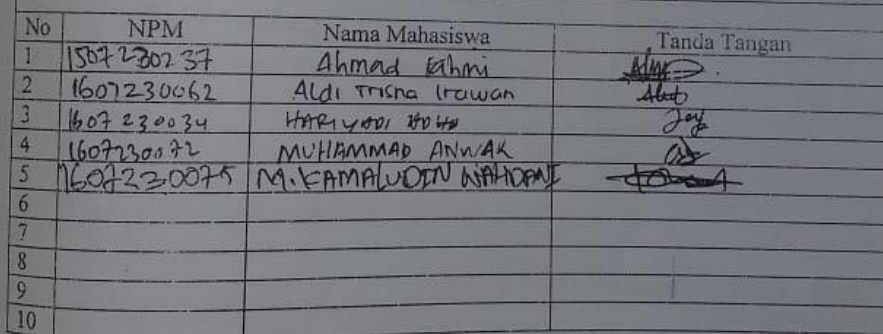 No NPM Nama Mahasiswa Tanda Tangan
1 1507230237 Ahmad Fahmi
2 1607230062 Aldi Trisna Irawan
3 1607230034 HARIYADI
4 1607230072 MUHAMMAD ANWAR
5 1607230075 M. KAMALUDIN WAHDANI
6
7
8
9
10